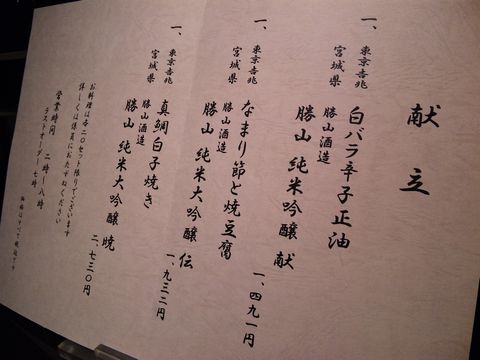 献立
一、
東京吉兆 白バラ辛子正油
宮城県 勝山酒造 勝山 純米吟醸 献
一、四九一円
一、
東京吉兆 なまり節と焼豆腐
宮城県 勝山酒造 勝山 純米大吟醸 伝
一、九三二円
一、
東京吉兆 真鯛白子焼き
宮城県 勝山酒造 勝山 純米大吟醸 暁
二、七三〇円
お料理は各二〇セット限りでございます
詳しくは係員におたずねください
営業時間 二時〜八時
ラストオーダー 七時
価格はすべて税込です